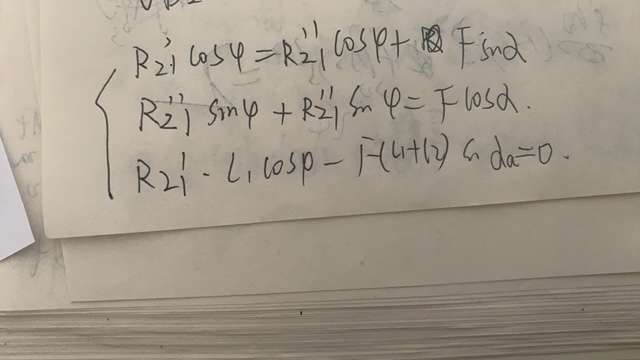 R21' cosφ = R21'' cosφ + F sinα
R21'' sinφ + R21'' sinφ = F cosα.
R21' · L1 cosφ − F(L1+L2) = 0.